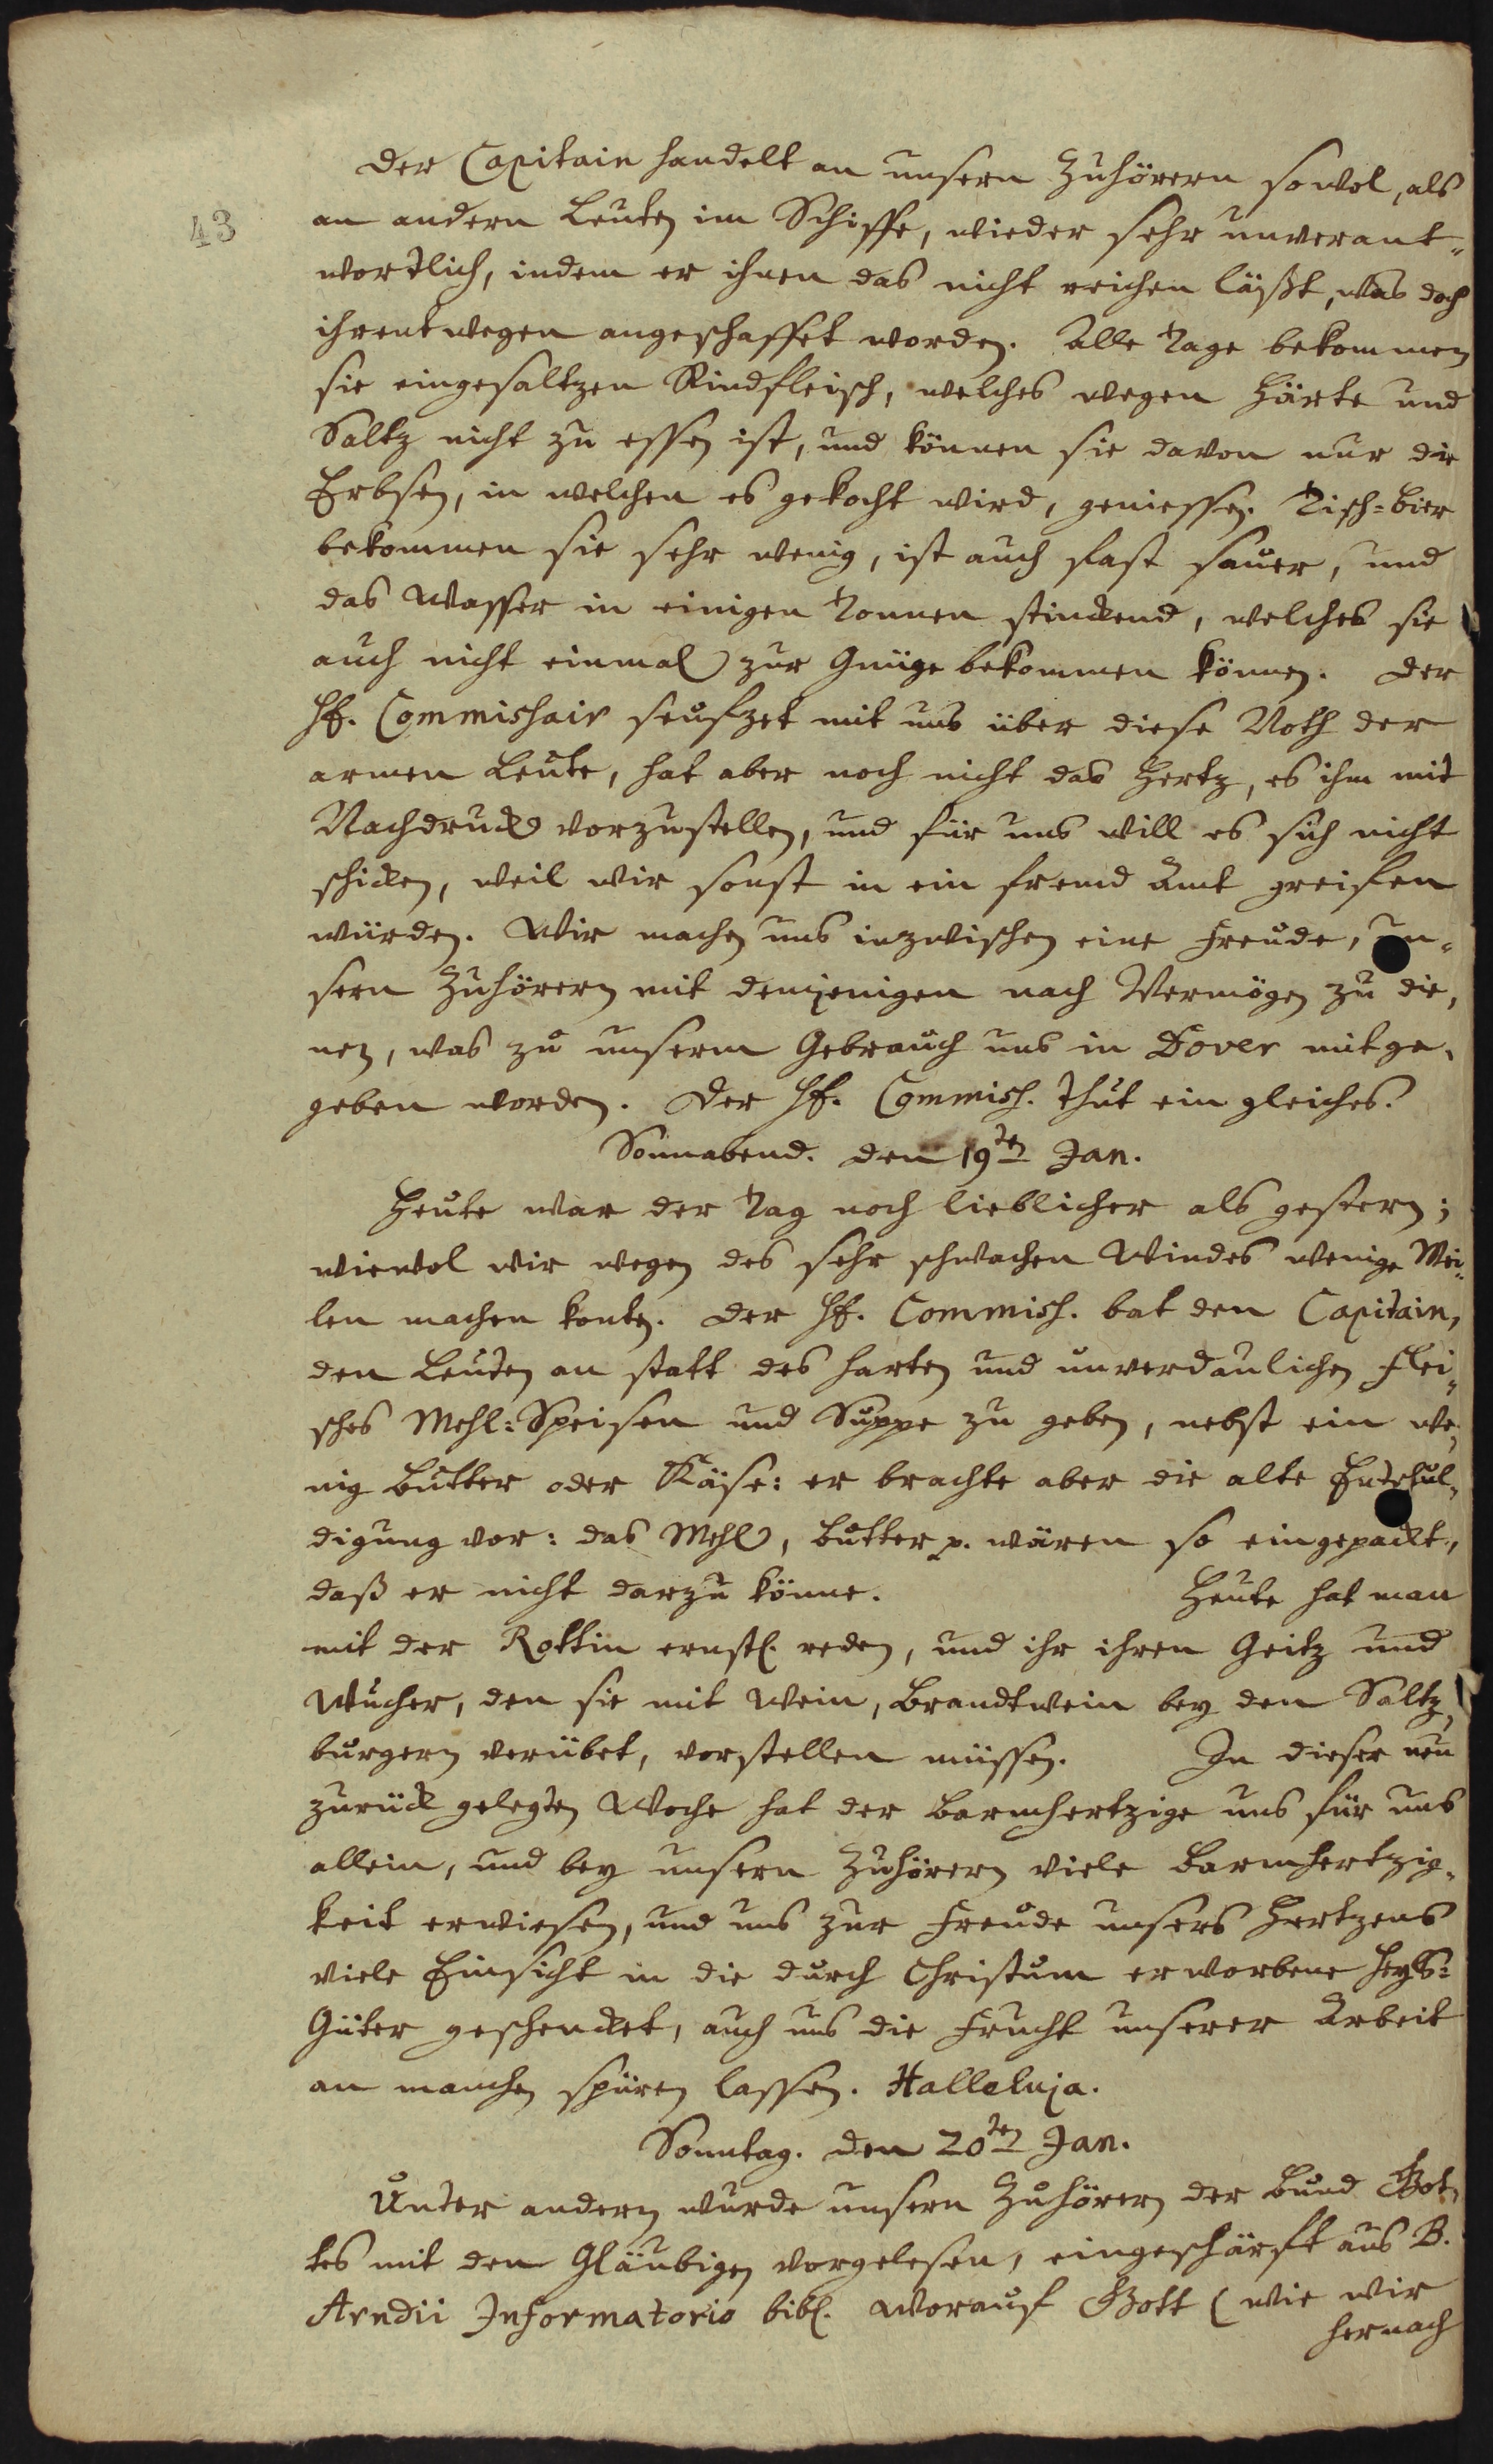 Der Capitain handelt an unsern Zuhörern sowol, als
43
an andern Leuten im Schiffe, wieder sehr unverant-
wortlich, indem er ihnen das nicht reichen läßt, was doch
ihrentwegen angeschaffet worden. Alle Tage bekommen
sie eingesaltzen Rindfleisch, welches wegen Härte und
Saltz nicht zu essen ist, und können sie davon nur die
Erbsen, in welchen es gekocht wird, geniessen. Tisch-bier
bekommen sie sehr wenig, ist auch fast sauer, und
das Wasser in einigen Tonnen stinckend, welches sie
auch nicht einmal zur Gnüge bekommen können. Der
Hr. Commissair seufzet mit uns über diese Noth der
armen Leute, hat aber noch nicht das Hertz, es ihm mit
Nachdruck vorzustellen, und für uns will es sich nicht
schicken, weil wir sonst in ein fremd Amt greifen
würden. Wir machen uns inzwischen eine Freude, un-
sern Zuhörern mit demjenigen nach Vermögen zu die-
nen, was zu unserm Gebrauch uns in Dover mitge-
geben worden. Der Hr. Commiss. thut ein gleiches.
Sonnabend. den 19ten Jan.
Heute war der Tag noch lieblicher als gestern;
wiewol wir wegen des sehr schwachen Windes wenige Mei-
len machen konten. Der Hr. Commiss. bat den Capitain,
den Leuten an statt des harten und unverdaulichen Flei-
sches Mehl-Speisen und Suppe zu geben, nebst ein we-
nig Butter oder Käse: er brachte aber die alte Entschul-
digung vor: das Mehl, Butter p. wären so eingepackt,
daß er nicht darzu könne. Heute hat man
mit der Rottin ernstl. reden, und ihr ihren Geitz und
Wucher, den sie mit Wein, Brandtwein bey den Saltz-
burgern verübet, vorstellen müssen. In dieser nun
zurück gelegten Woche hat der Barmhertzige uns für uns
allein, und bey unsern Zuhörern viele Barmhertzig-
keit erwiesen, und uns zur Freude unsers Hertzens
viele Einsicht in die durch Christum erworbene Heyls-
Güter geschencket, auch uns die Frucht unserer Arbeit
an manchen spüren lassen. Halleluja.
Sonntag. den 20ten Jan.
Unter andern wurde unsern Zuhörern der Bund Got-
tes mit den Gläubigen vorgelesen, eingeschärft aus B.
Arndii Informatorio bibl. worauf Gott (wie wir
hernach